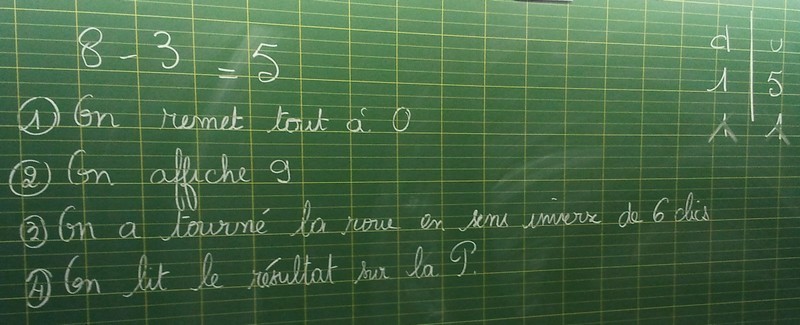 8 - 3 = 5
① On remet tout à 0
② On affiche 9
③ On a tourné la roue en sens inverse de 6 clics
④ On lit le résultat sur la P.
d | u
1 | 5
1 | 1